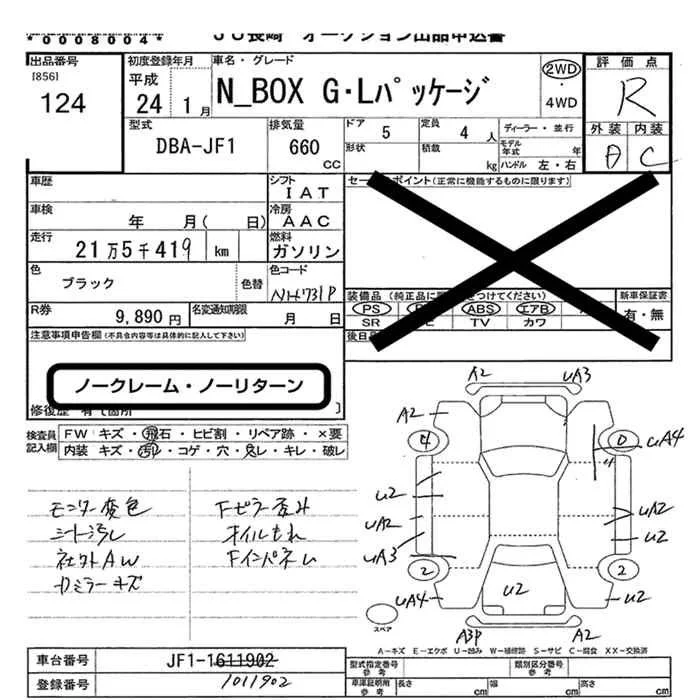 *0008004*
JU長崎 オークション出品申込書
出品番号
[856]
124
初度登録年月
平成
24 1月
車名・グレード
N_BOX G・Lパッケージ
2WD
・
4WD
評価点
R
外装 内装
A C
型式
DBA-JF1
排気量
660
CC
ドア 5
形状
定員 4 人
積載 kg
ディーラー・並行
モデル年式 年
ハンドル 左・右
車歴
シフト
IAT
車検
年 月( 日)
冷房
AAC
走行
21万5千419 km
燃料
ガソリン
色
ブラック
色替
色コード
NH731P
R券
9,890円
名変通知期限
月 日
セールスポイント(正常に機能するものに限ります)
装備品
PS ABS エアB
SR TV カワ
新車保証書
有・無
注意事項申告欄(不具合内容等は具体的に記入して下さい)
ノークレーム・ノーリターン
修復歴 有て箇所 〕
検査員記入欄
FW キズ・飛石・ヒビ割・リペア跡・×要
内装 キズ・汚レ・コゲ・穴・臭レ・キレ・破レ
モニター変色
シート汚レ
社外AW
Fピラー歪み
オイルもれ
Fインパネム
ドミラーキズ
A2 UA3
A2
4 0
UA4
U
U2
UA2
UA2
U2
UA3
2 2
UA4
U2
U2
A3P A2
スペア
A-キズ E-エクボ U-凹み W-補修跡 S-サビ C-腐食 XX-交換済
車台番号
JF1-1611902
1011902
登録番号
型式指定番号
参考
類別区分番号
参考
車庫証明用
参考
長さ cm
幅 cm
高さ cm